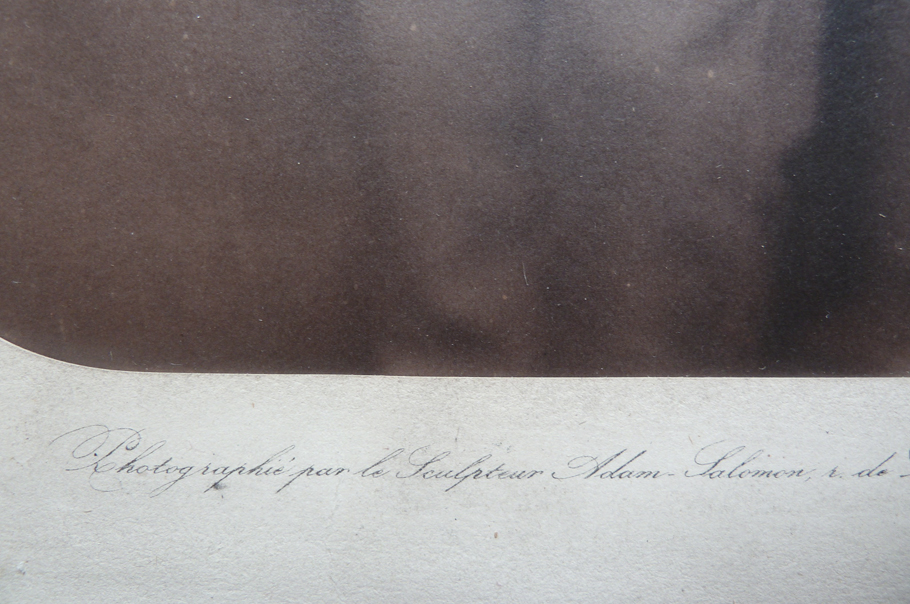 Photographié par le Sculpteur Adam-Salomon, r. de